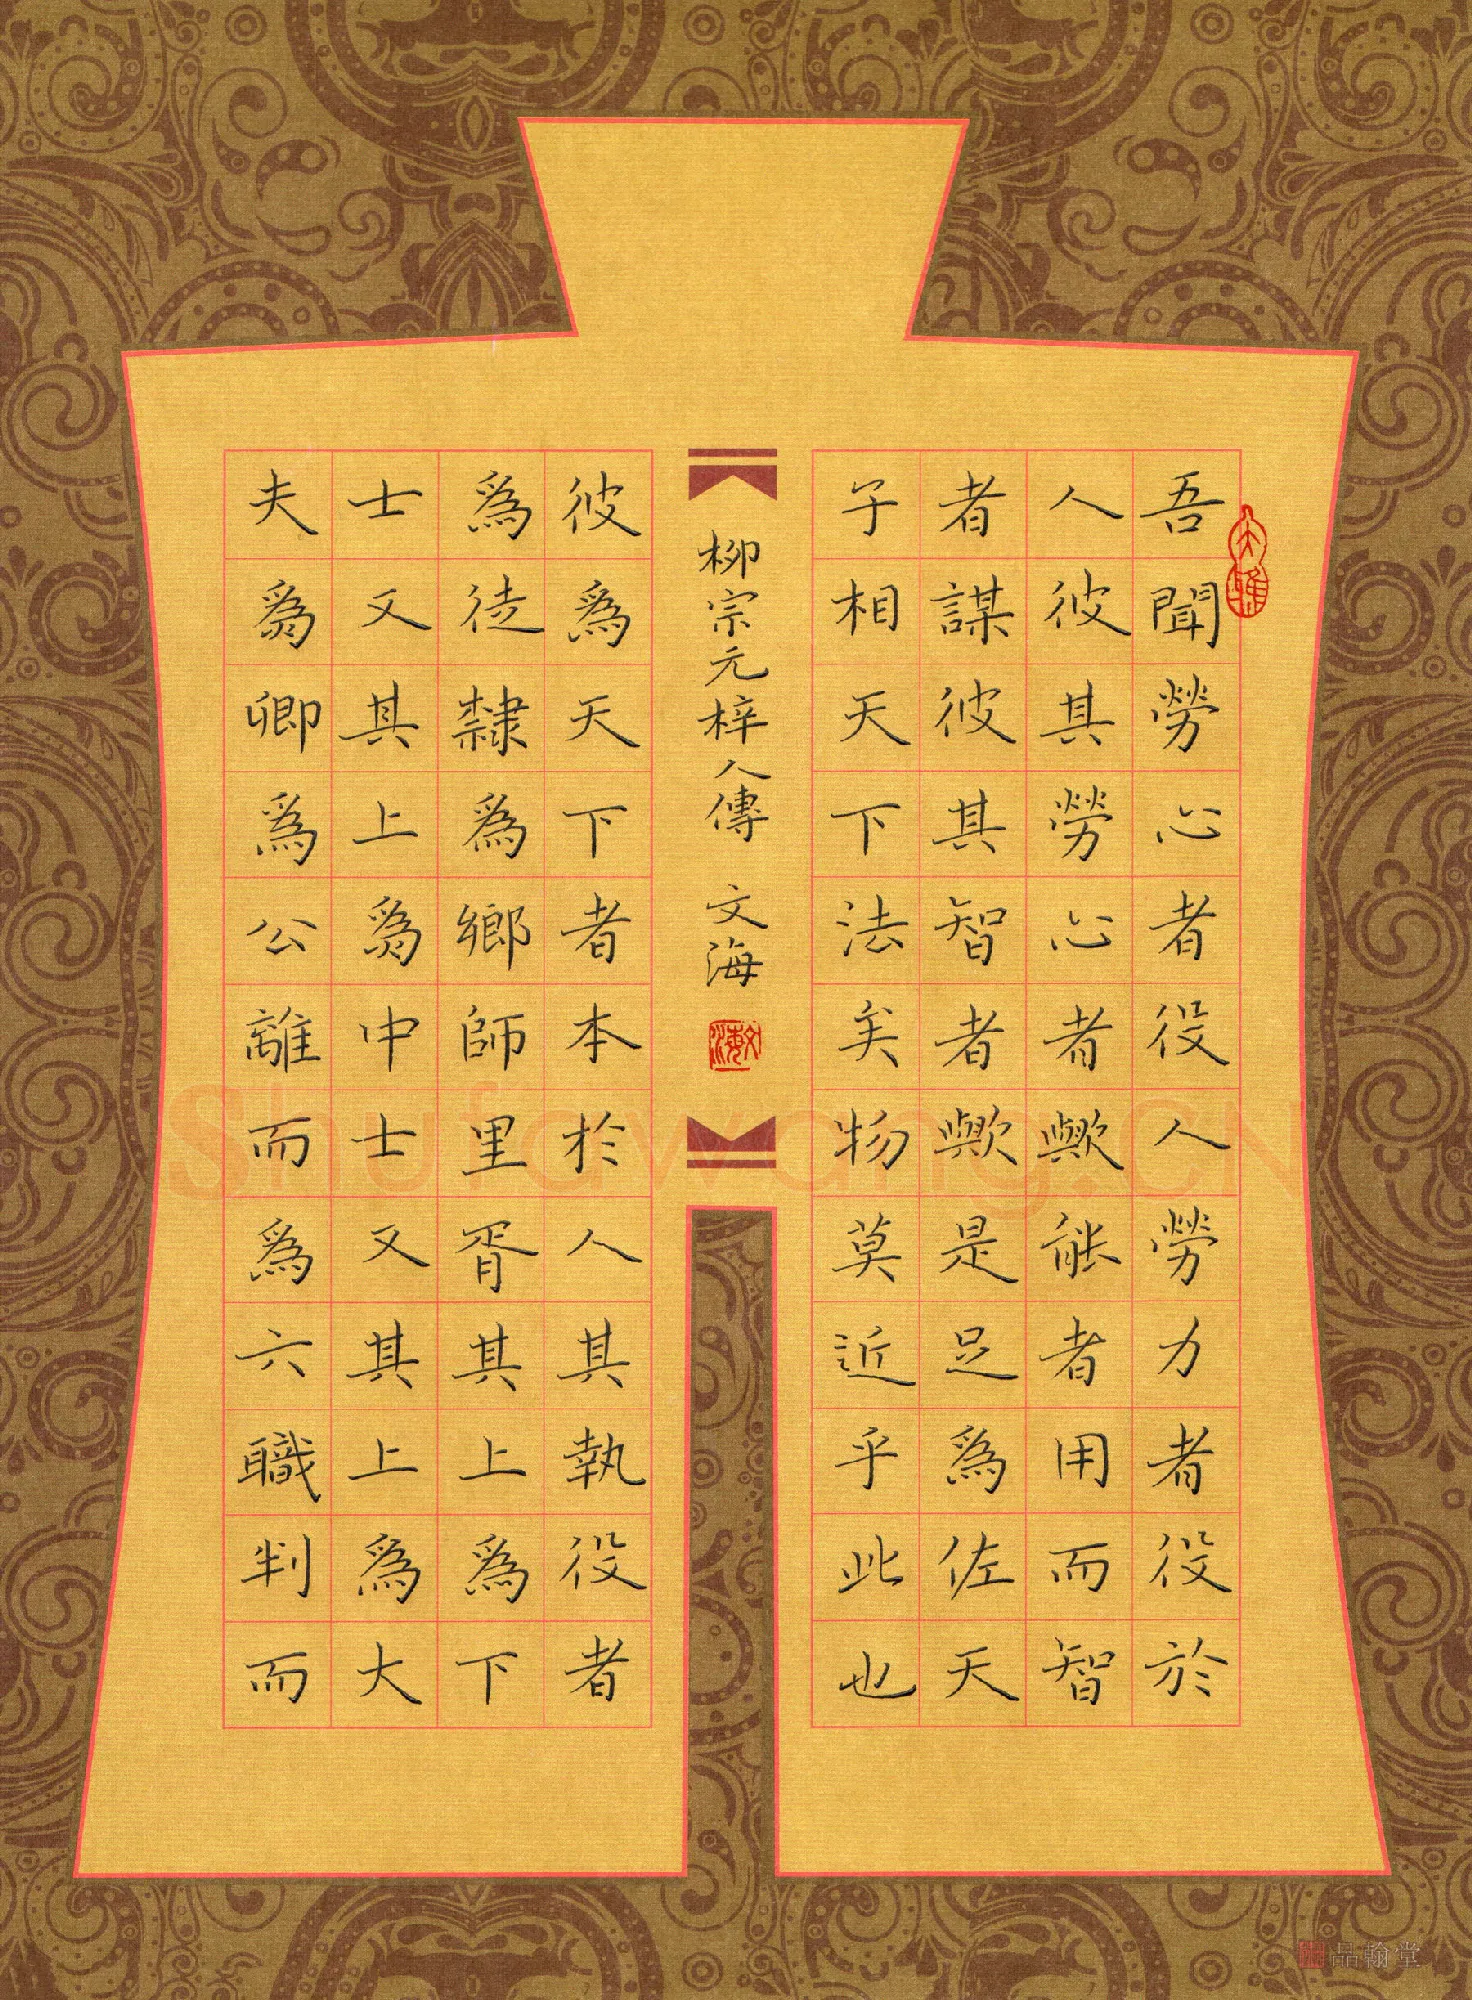 吾聞勞心者役人勞力者役於
人彼其勞心者歟能者用而智
者謀彼其智者歟是足為佐天
子相天下法矣物莫近乎此也
柳宗元梓人傳 文海
文海
彼為天下者本於人其執役者
為徒隸為鄉師里胥其上為下
士又其上為中士又其上為大
夫為卿為公離而為六職判而
Shufawang.CN
品翰堂